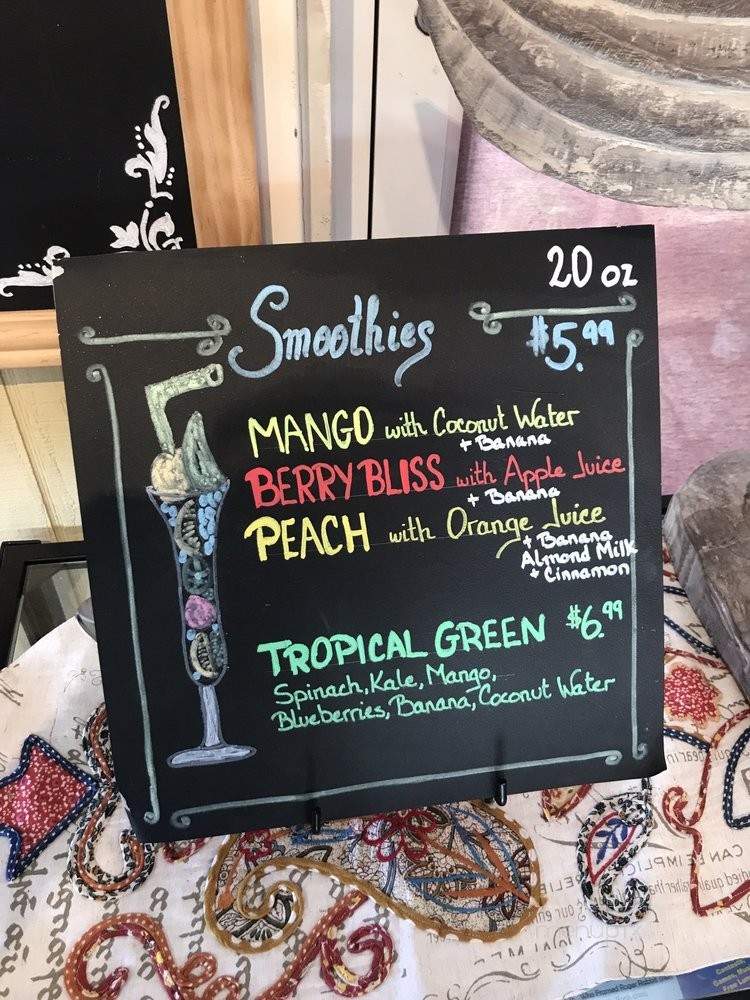 20 oz
Smoothies
$5.99
MANGO with Coconut Water
+ Banana
BERRY BLISS with Apple Juice
+ Banana
PEACH with Orange Juice
+ Banana
Almond Milk
+ Cinnamon
TROPICAL GREEN $6.99
Spinach, Kale, Mango,
Blueberries, Banana, Coconut Water